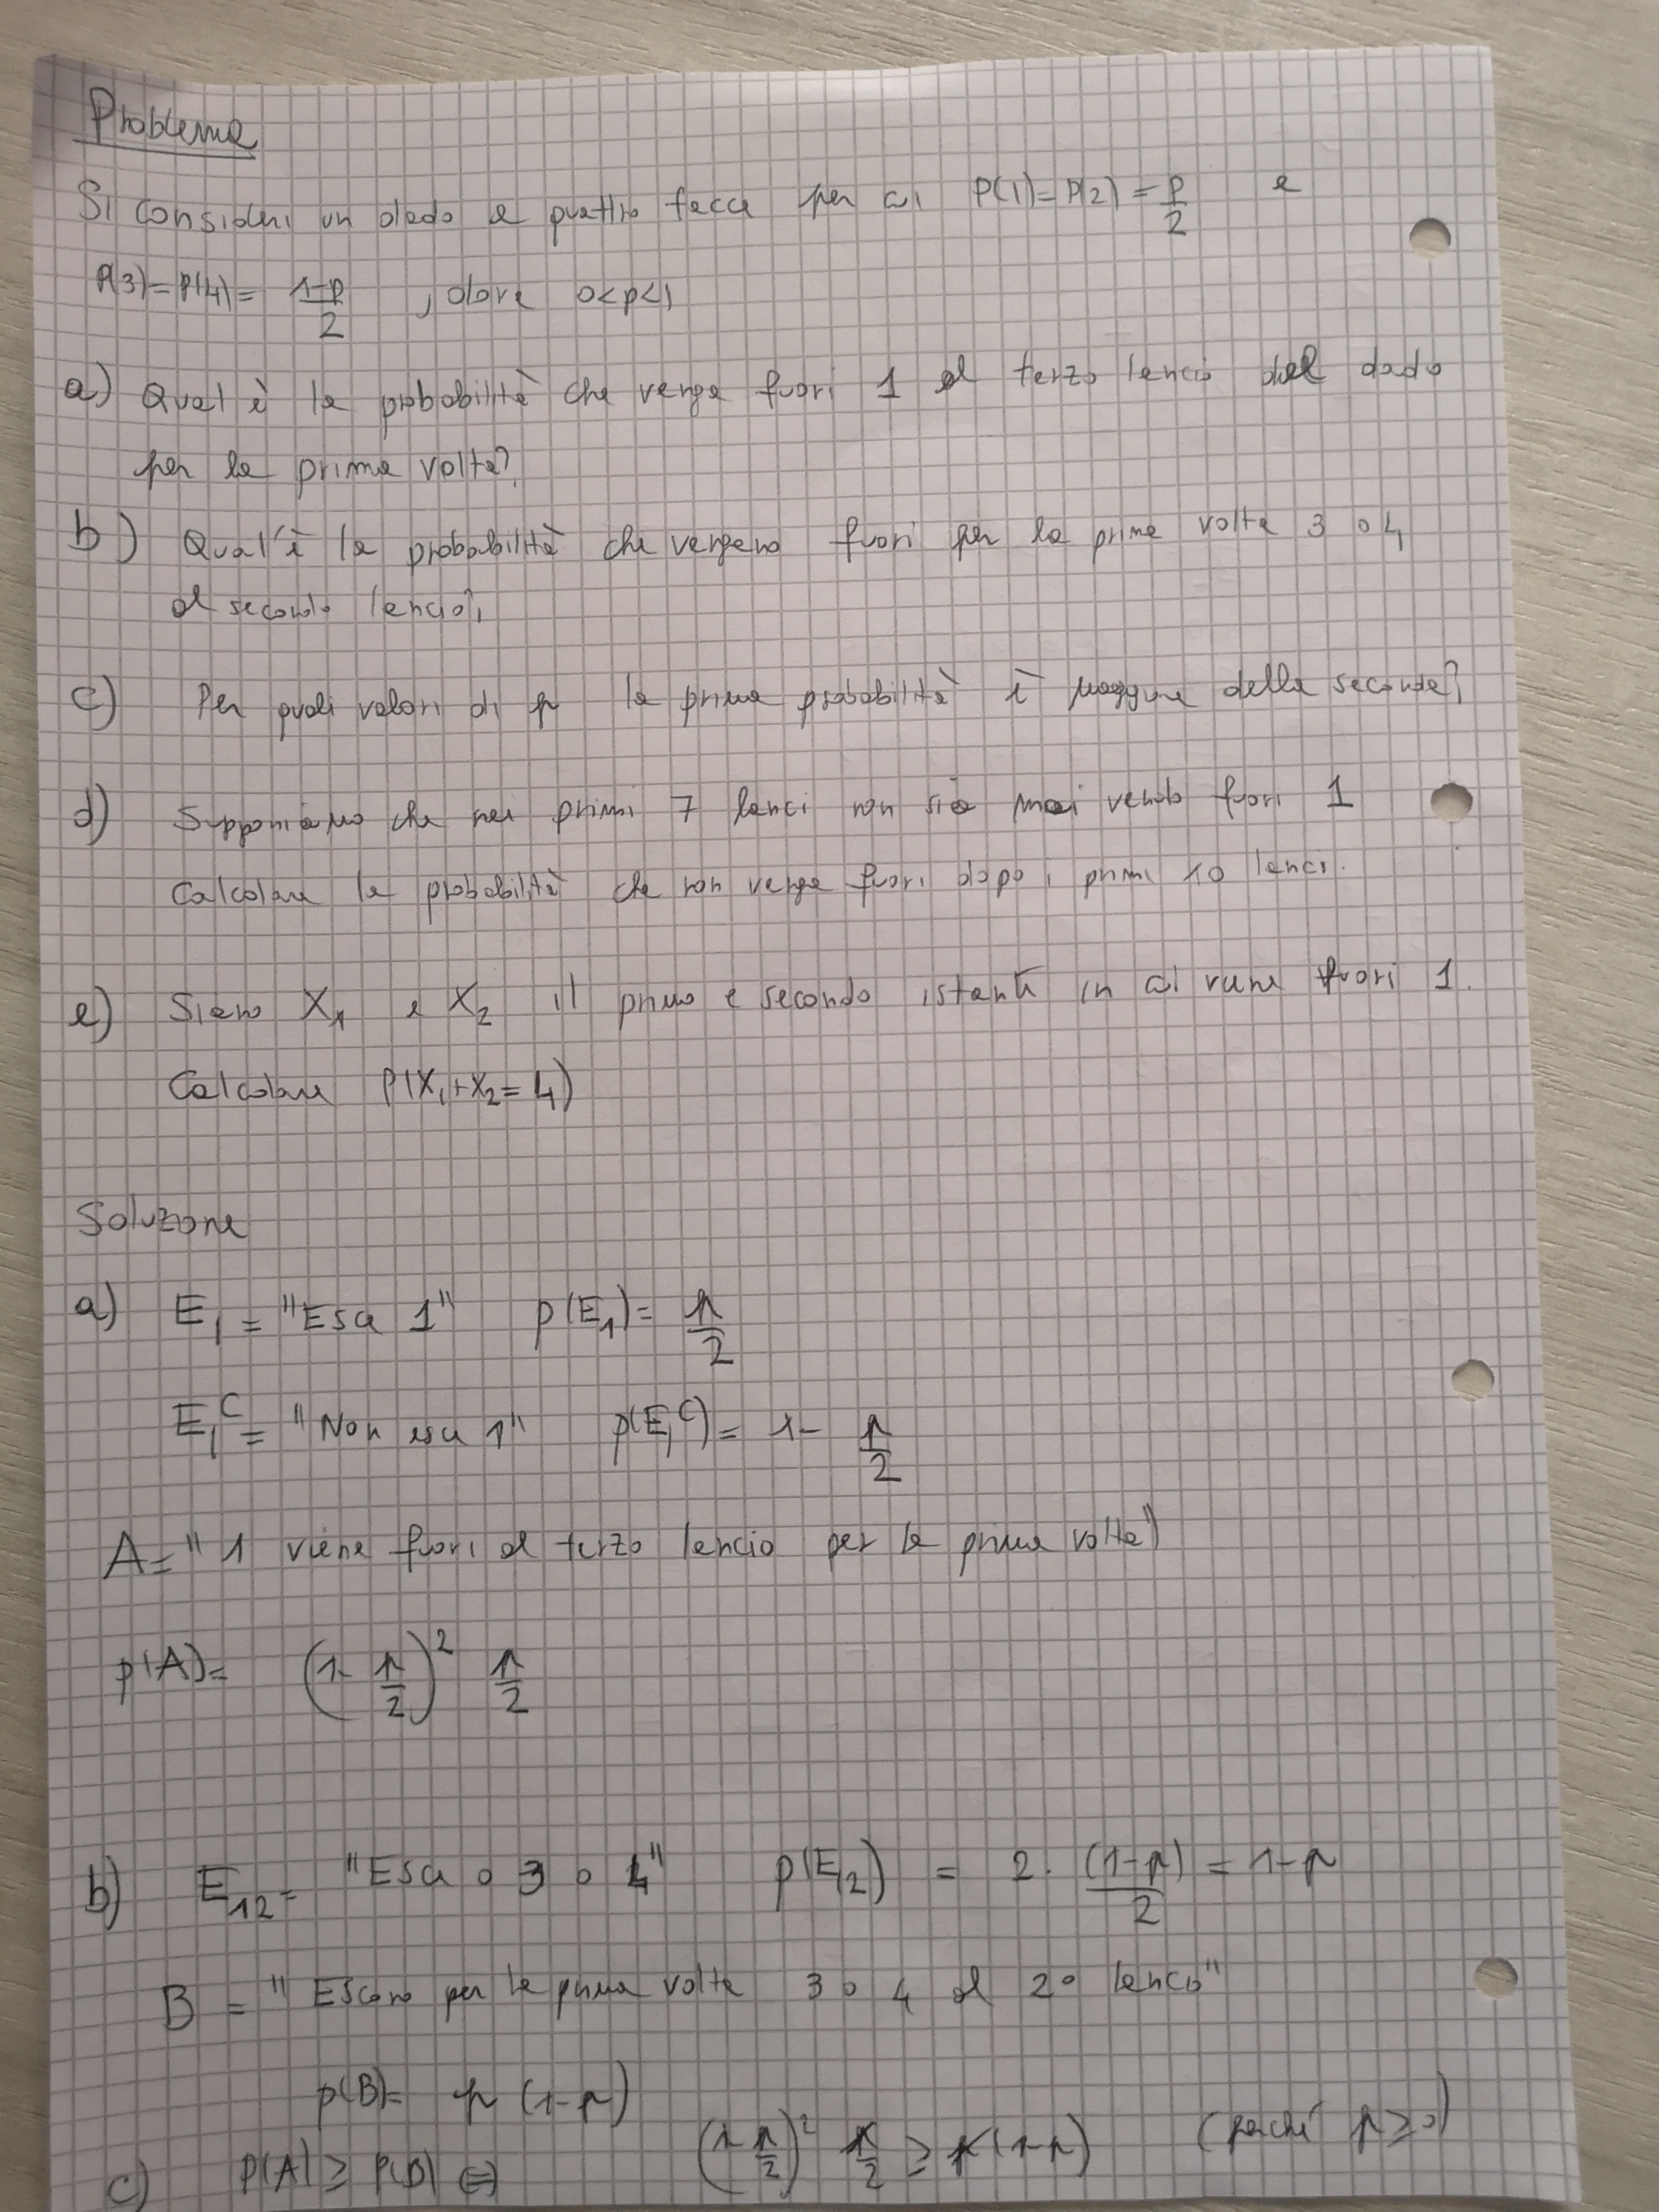 Problema
Si consideri un dado a quattro facce per cui P(1)=P(2)=p/2 e
P(3)=P(4)= (1-p)/2 , dove 0<p<1
a) Qual è la probabilità che venga fuori 1 al terzo lancio del dado
per la prima volta?
b) Qual'è la probabilità che vengano fuori per la prima volta 3 o 4
al secondo lancio?
c) Per quali valori di p la prima probabilità è maggiore della seconda?
d) Supponiamo che nei primi 7 lanci non sia mai venuto fuori 1
Calcolare la probabilità che non venga fuori dopo i primi 10 lanci.
e) Siano X₁ e X₂ il primo e secondo istanti in cui viene fuori 1.
Calcolare P(X₁+X₂=4)
Soluzione
a) E₁ = "Esce 1" p(E₁)= p/2
E₁ᶜ = "Non esce 1" p(E₁ᶜ)= 1- p/2
A= "1 viene fuori al terzo lancio per la prima volta"
p(A)= (1- p/2)² p/2
b) E₁₂= "Esce o 3 o 4" p(E₁₂) = 2· (1-p)/2 = 1-p
B = "Escono per la prima volta 3 o 4 al 2° lancio"
p(B)= p (1-p)
c) P(A) ≥ P(B) ⇔ (1- p/2)² p/2 ≥ p(1-p) (perché p≥0)